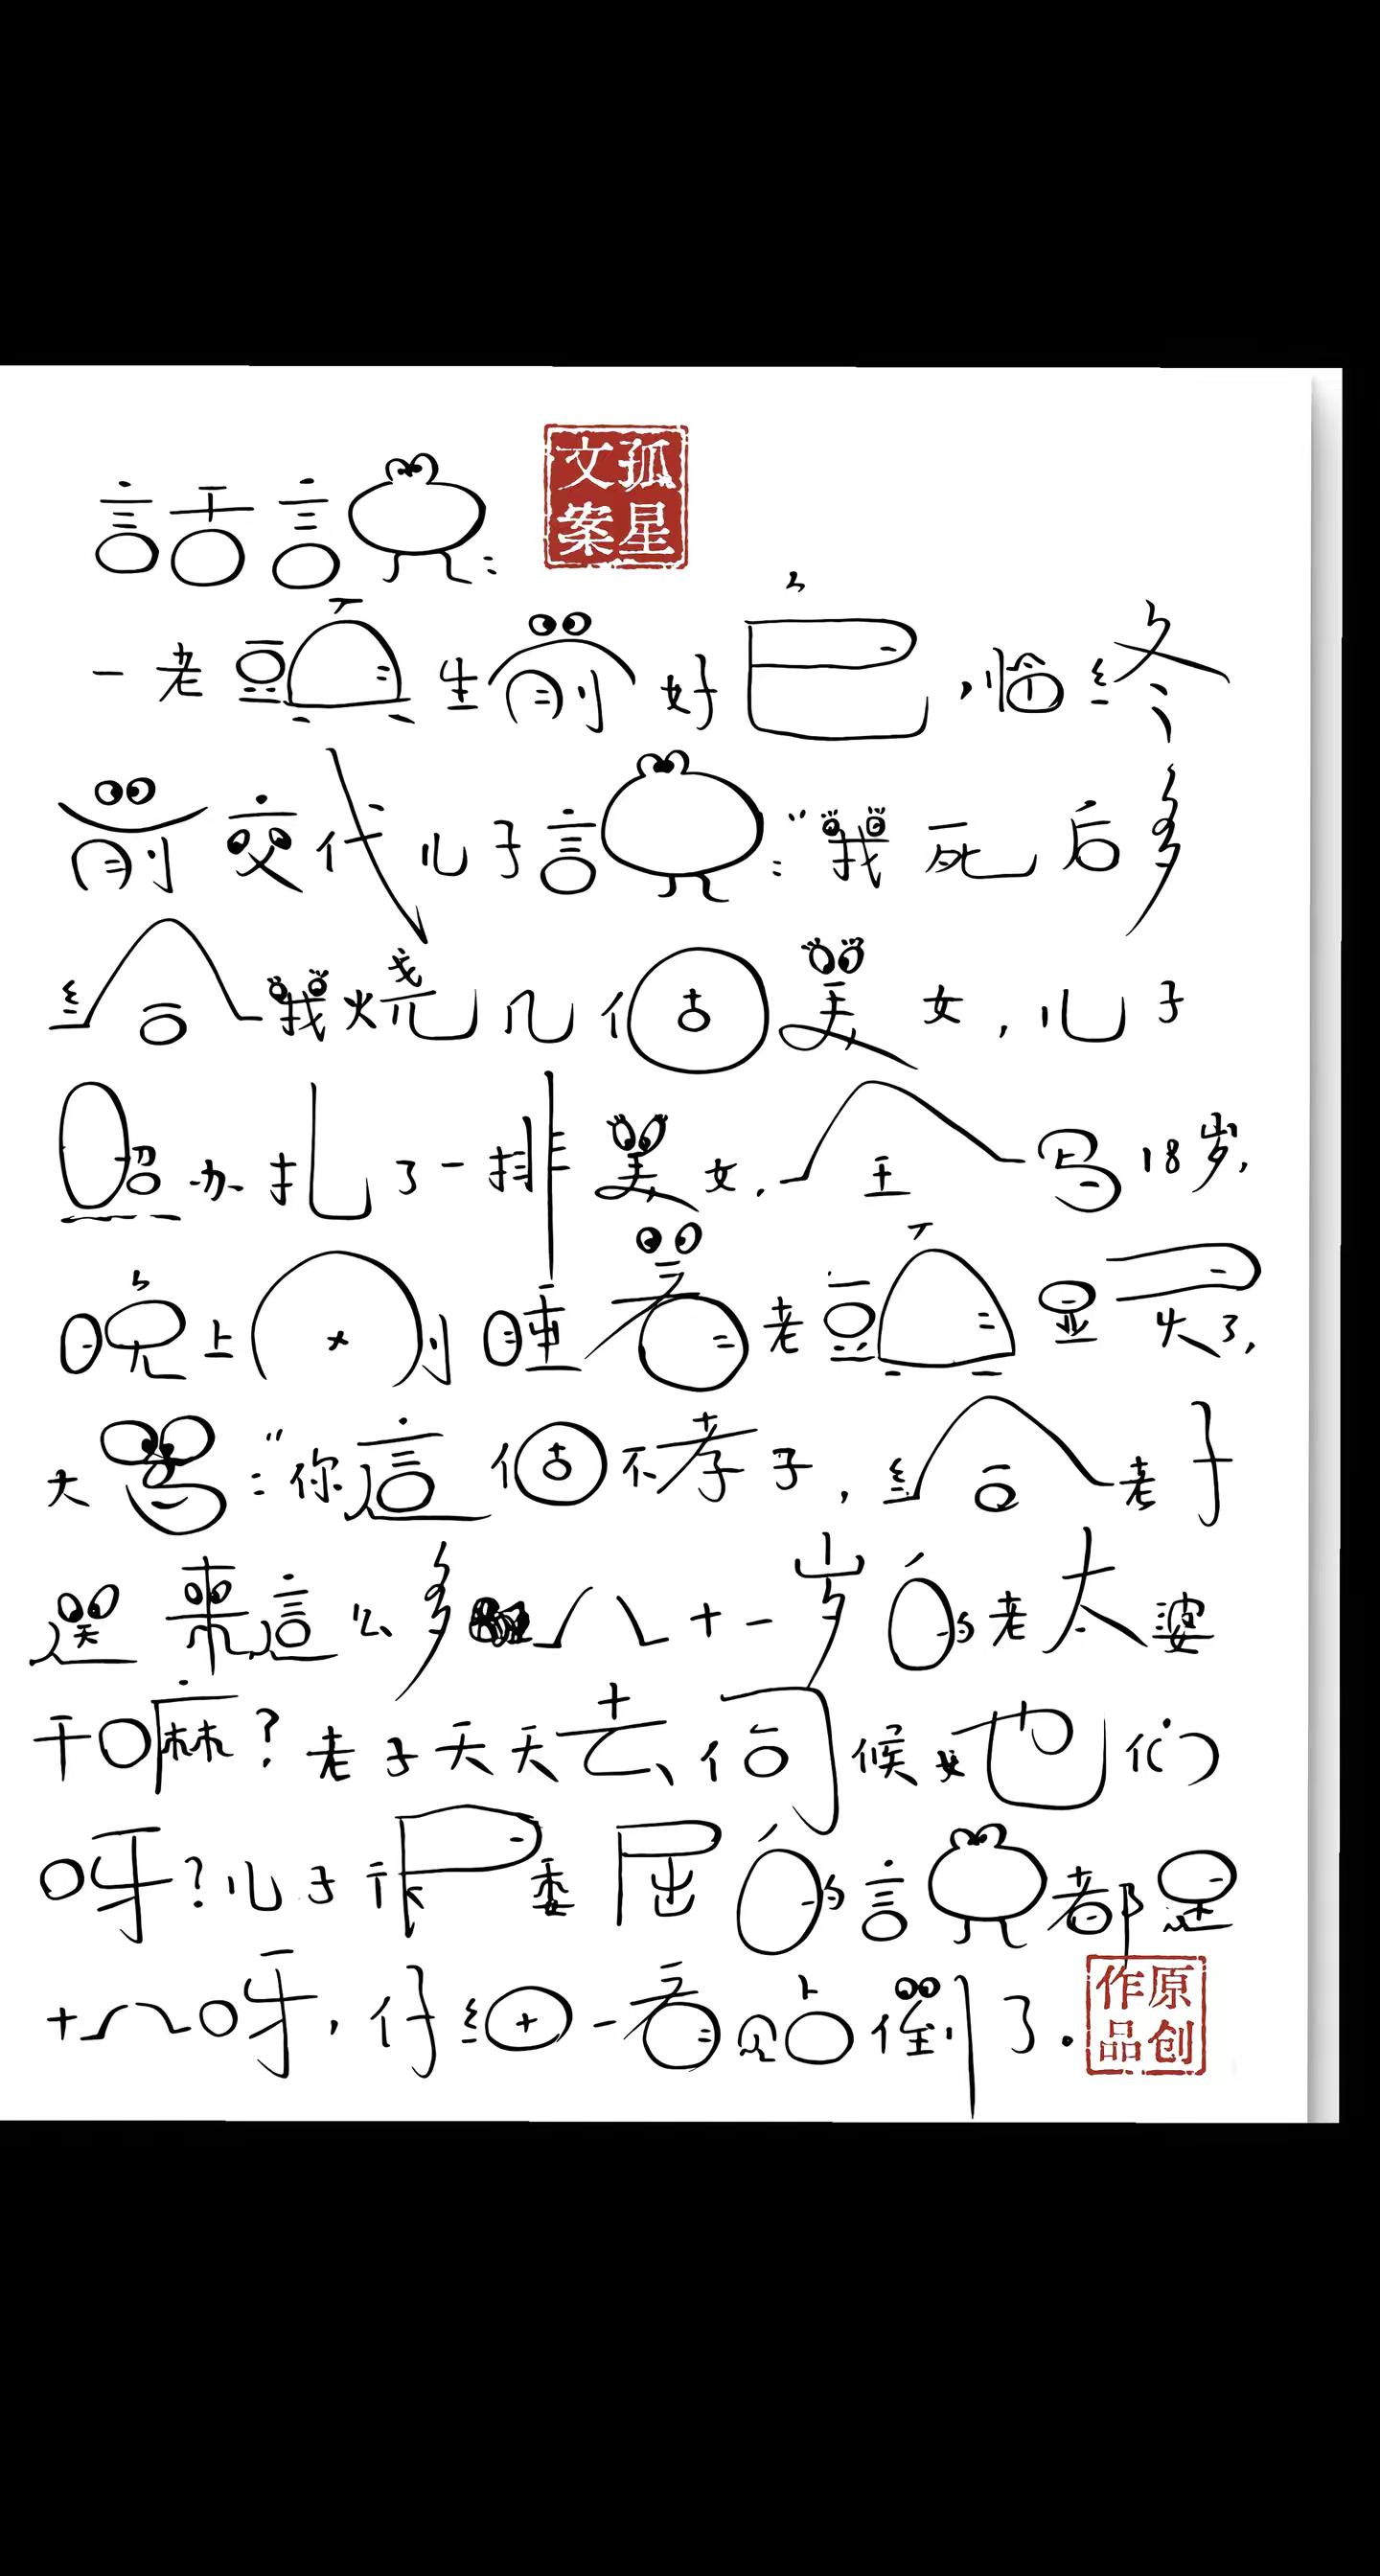 話說：
孤星文案
一老頭生前好色，临终
前交代儿子說："我死后多
給我烧几個美女，儿子
照办扎了一排美女，全写18岁，
晚上刚睡着老頭显灵了，
大骂："你這個不孝子，給老子
選來這么多八十一岁的老太婆
干嘛？老子天天去伺候她们
呀？儿子很委屈的說都是
十八呀，仔细一看贴倒了。
原创作品